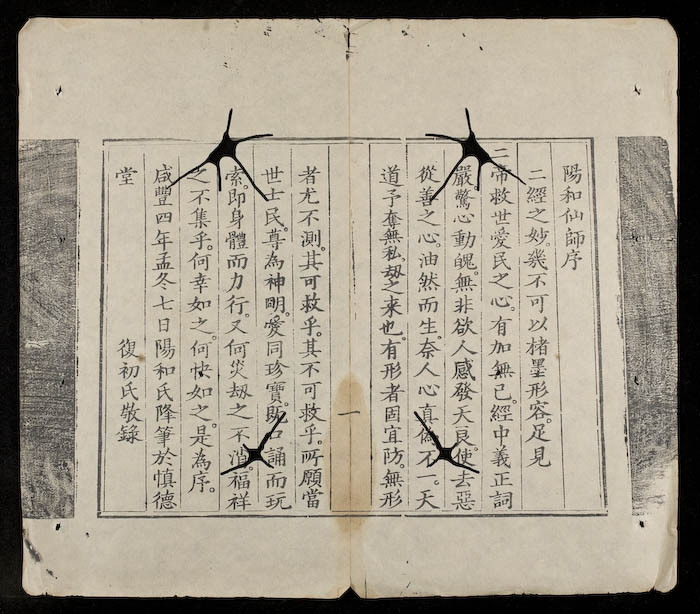 陽和仙師序
二經之妙。幾不可以楮墨形容。足見
二帝救世愛民之心。有加無已。經中義正詞
嚴。驚心動魄。無非欲人感發天良。使去惡
從善之心。油然而生。奈人心真偽不一。天
道予奪無私。劫之来也。有形者固宜防。無形
一
者尤不測。其可救乎。其不可救乎。所願當
世士民。尊為神明。愛同珍寶。既口誦而玩
索。即身體而力行。又何災劫之不消。福祥
之不集乎。何幸如之。何快如之。是為序。
咸豐四年孟冬七日陽和氏降筆於慎德
堂 復初氏敬錄